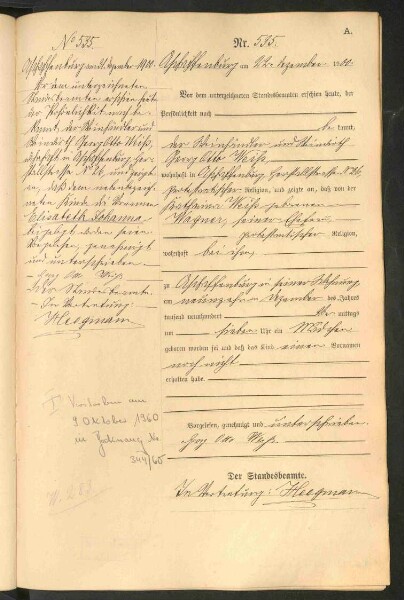 A.
Nr. 535.
Aschaffenburg am 22. Dezember 1900.
Vor dem unterzeichneten Standesbeamten erschien heute, der
Persönlichkeit nach
be kannt,
der Weinhändler und Weinwirt
Georg Otto Weiß,
wohnhaft in Aschaffenburg Herstallstrasse No 26,
protestantischer Religion, und zeigte an, daß von der
Weiß gebornen
Wagner, seiner Ehefrau
protestantischer Religion,
wohnhaft bei ihm,
zu Aschaffenburg in seiner Wohnung
am neunzehnten Dezember des Jahres
tausend neunhundert mittags
um sieben Uhr ein Mädchen
geboren worden sei und daß das Kind einen Vornamen
noch nicht
erhalten habe.
Vorgelesen, genehmigt und unterschrieben
Georg Otto Weiß.
Der Standesbeamte.
In Vertretung: Heegmann
No 535.
Aschaffenburg am 31. Dezember 1900.
Vor dem unterzeichneten
Standesbeamten erschien heute
der Persönlichkeit nach be-
kannt, der Weinhändler und
Weinwirt Georg Otto Weiß,
wohnhaft in Aschaffenburg Her-
stallstrasse No 26, und zeigte
an, daß dem nebenbezeich-
neten Kinde die Vornamen
Elisabeth Johanna
beigelegt worden seien.
Vorgelesen, genehmigt
und unterschrieben
Georg Otto Weiß
Der Standesbeamte.
In Vertretung:
Heegmann
am
9. Oktober 1960
in No
344/60